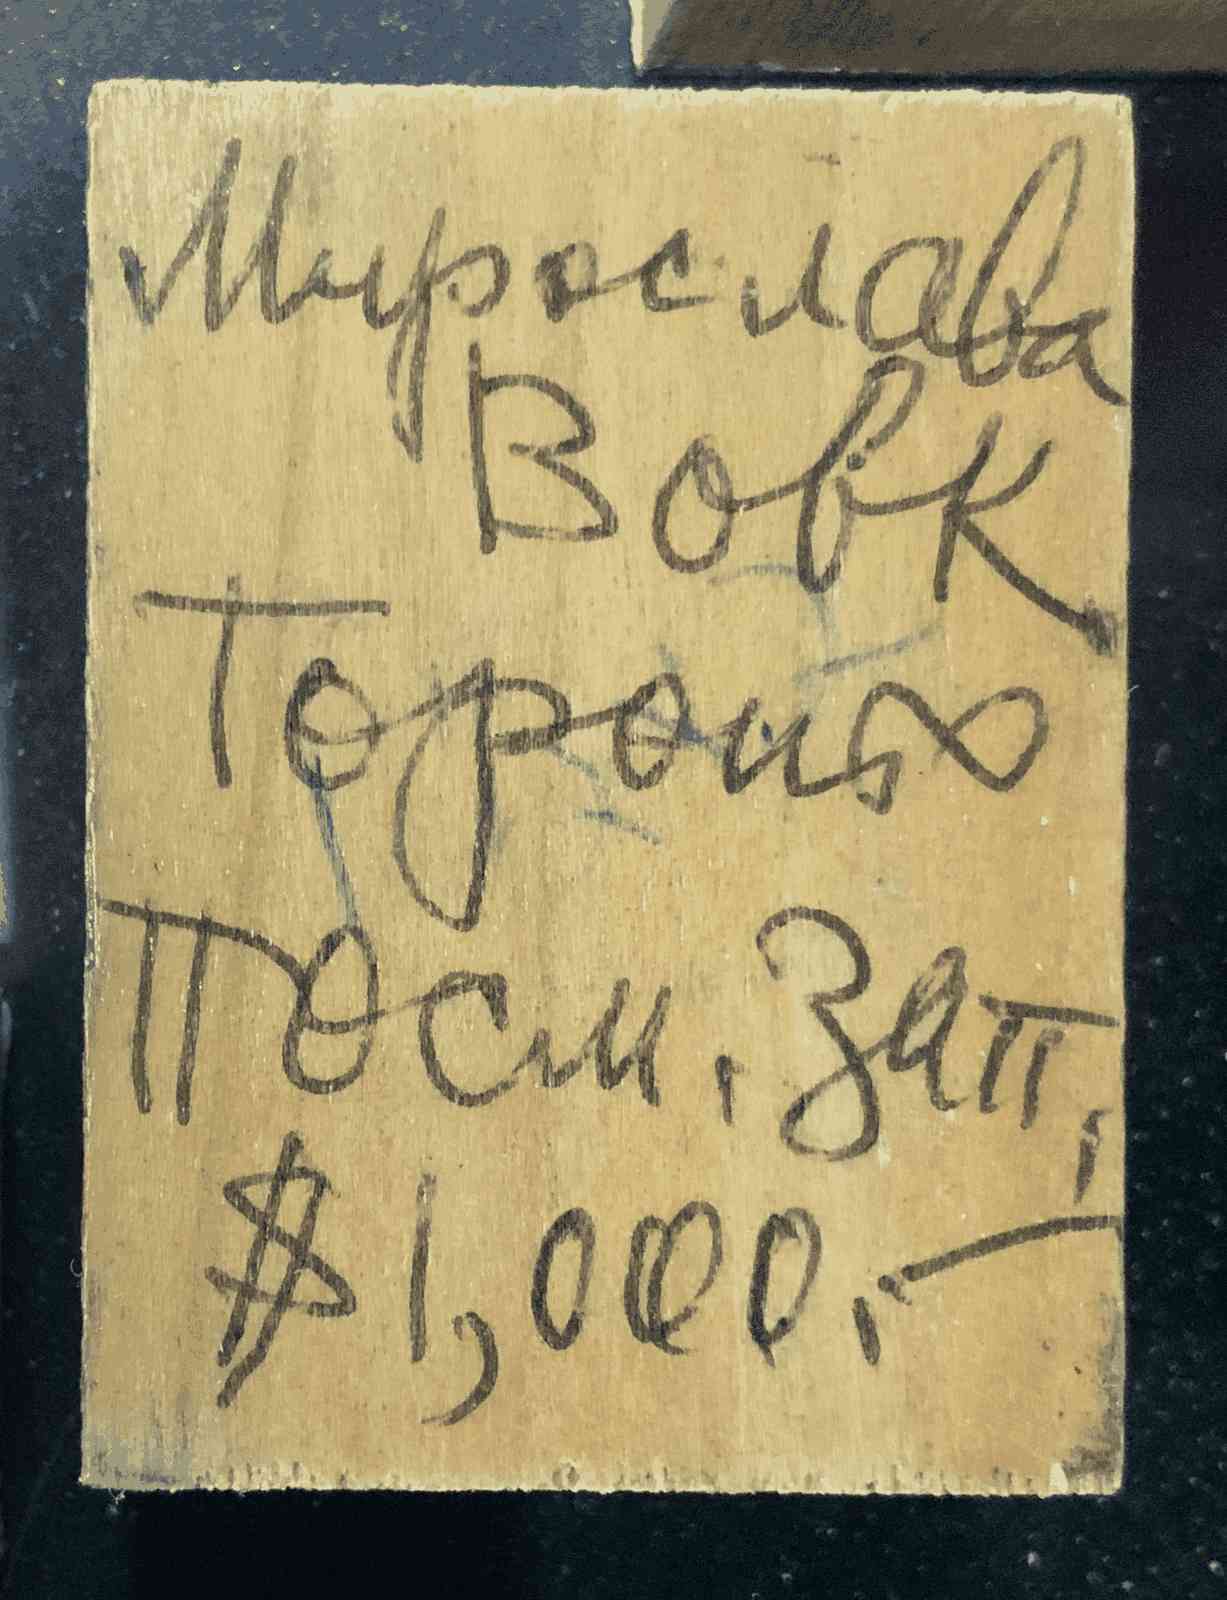 Мирослава
Вовк
Торонто
Посм. Зап.
$1,000.–